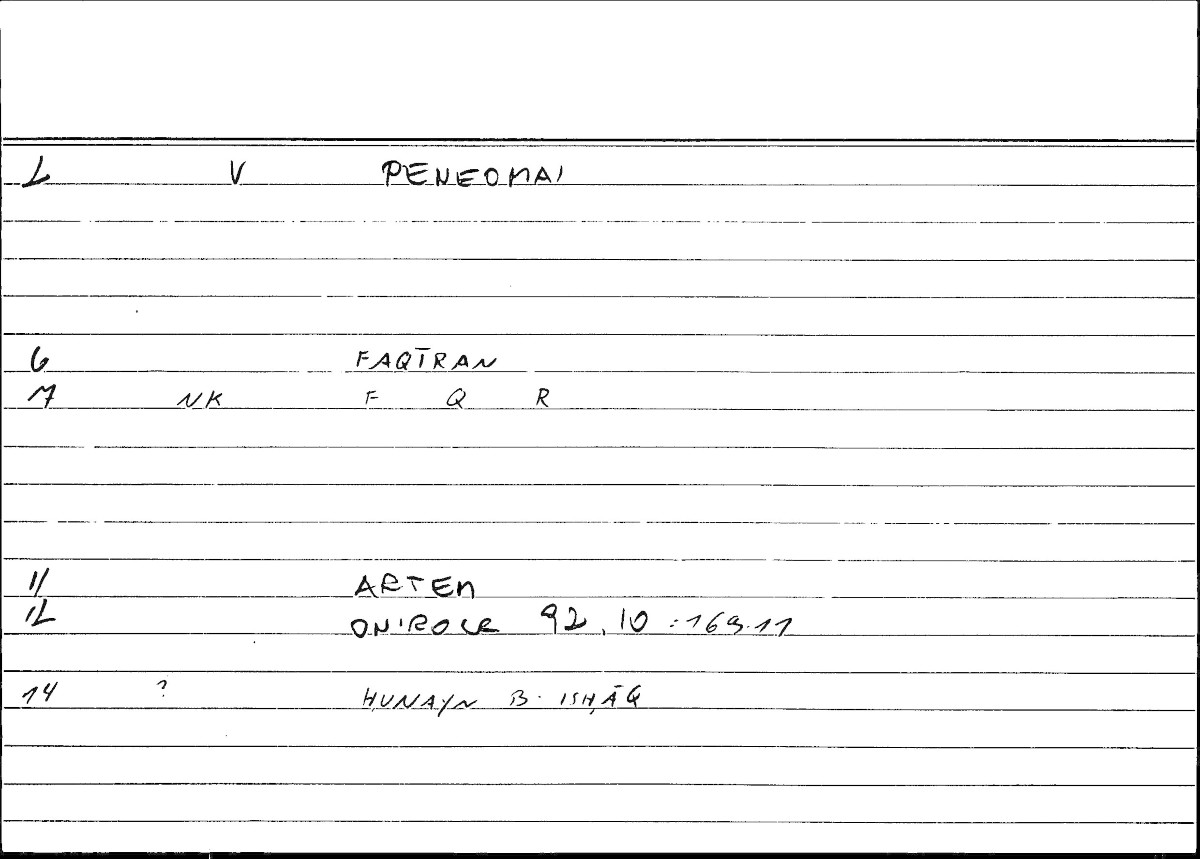 2 V PENEOMAI
6 FAQĪRAN
7 NK F Q R
11 ARTEM
12 ONIROCR 92,10:169.11
14 ? ḤUNAYN B. ISḤĀQ